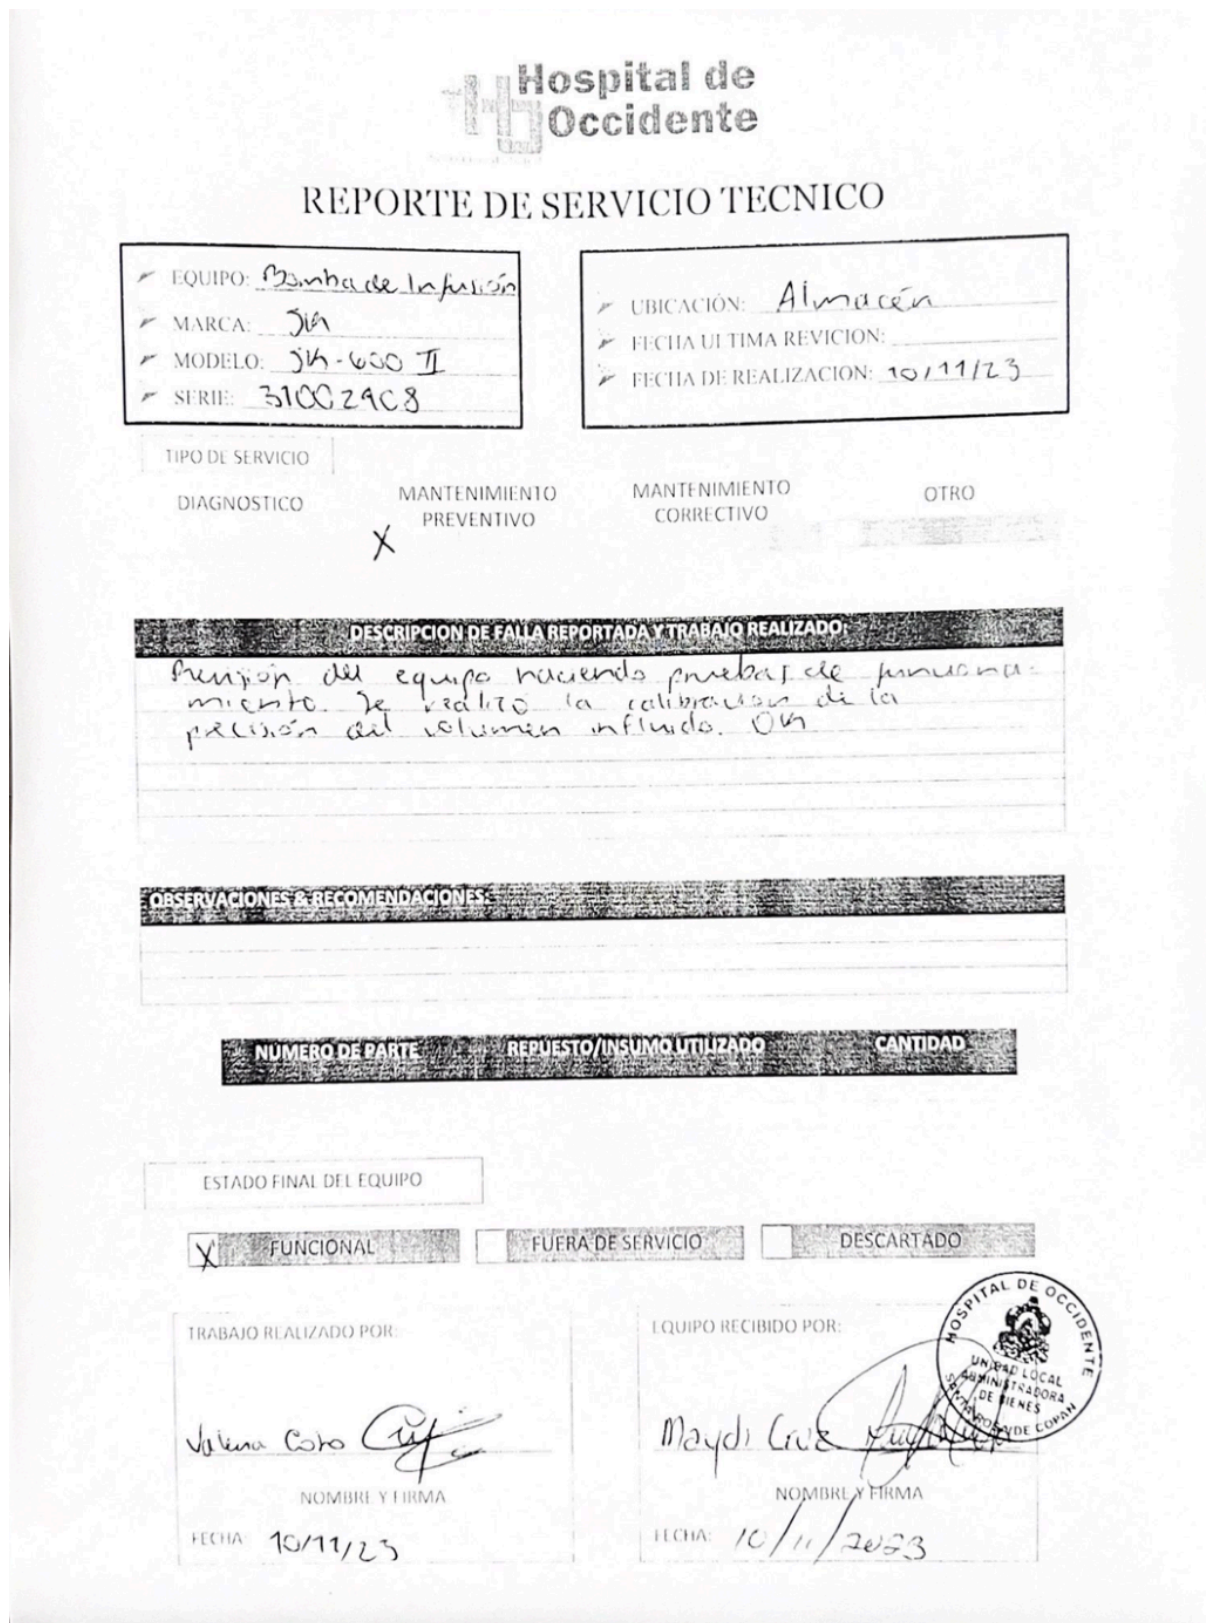 Hospital de
Occidente
REPORTE DE SERVICIO TECNICO
EQUIPO: Bomba de Infusión
MARCA: SK
MODELO: SK-600 II
SERIE: 310029C8
UBICACIÓN: Almacén
FECHA ULTIMA REVICION:
FECHA DE REALIZACION: 10/11/23
TIPO DE SERVICIO
DIAGNOSTICO
MANTENIMIENTO
PREVENTIVO
X
MANTENIMIENTO
CORRECTIVO
OTRO
DESCRIPCION DE FALLA REPORTADA Y TRABAJO REALIZADO:
del equipo haciendo pruebas de funciona-
miento. Se realizó la calibración de la
precisión del volumen influido. OK
OBSERVACIONES & RECOMENDACIONES:
NUMERO DE PARTE REPUESTO/INSUMO UTILIZADO CANTIDAD
ESTADO FINAL DEL EQUIPO
X FUNCIONAL
FUERA DE SERVICIO
DESCARTADO
TRABAJO REALIZADO POR:
Valeria
NOMBRE Y FIRMA
FECHA: 10/11/23
EQUIPO RECIBIDO POR:
Maydi Cruz
NOMBRE Y FIRMA
FECHA: 10/11/2023
HOSPITAL DE OCCIDENTE
UNIDAD LOCAL
ADMINISTRADORA
DE BIENES
SANTA ROSA DE COPAN